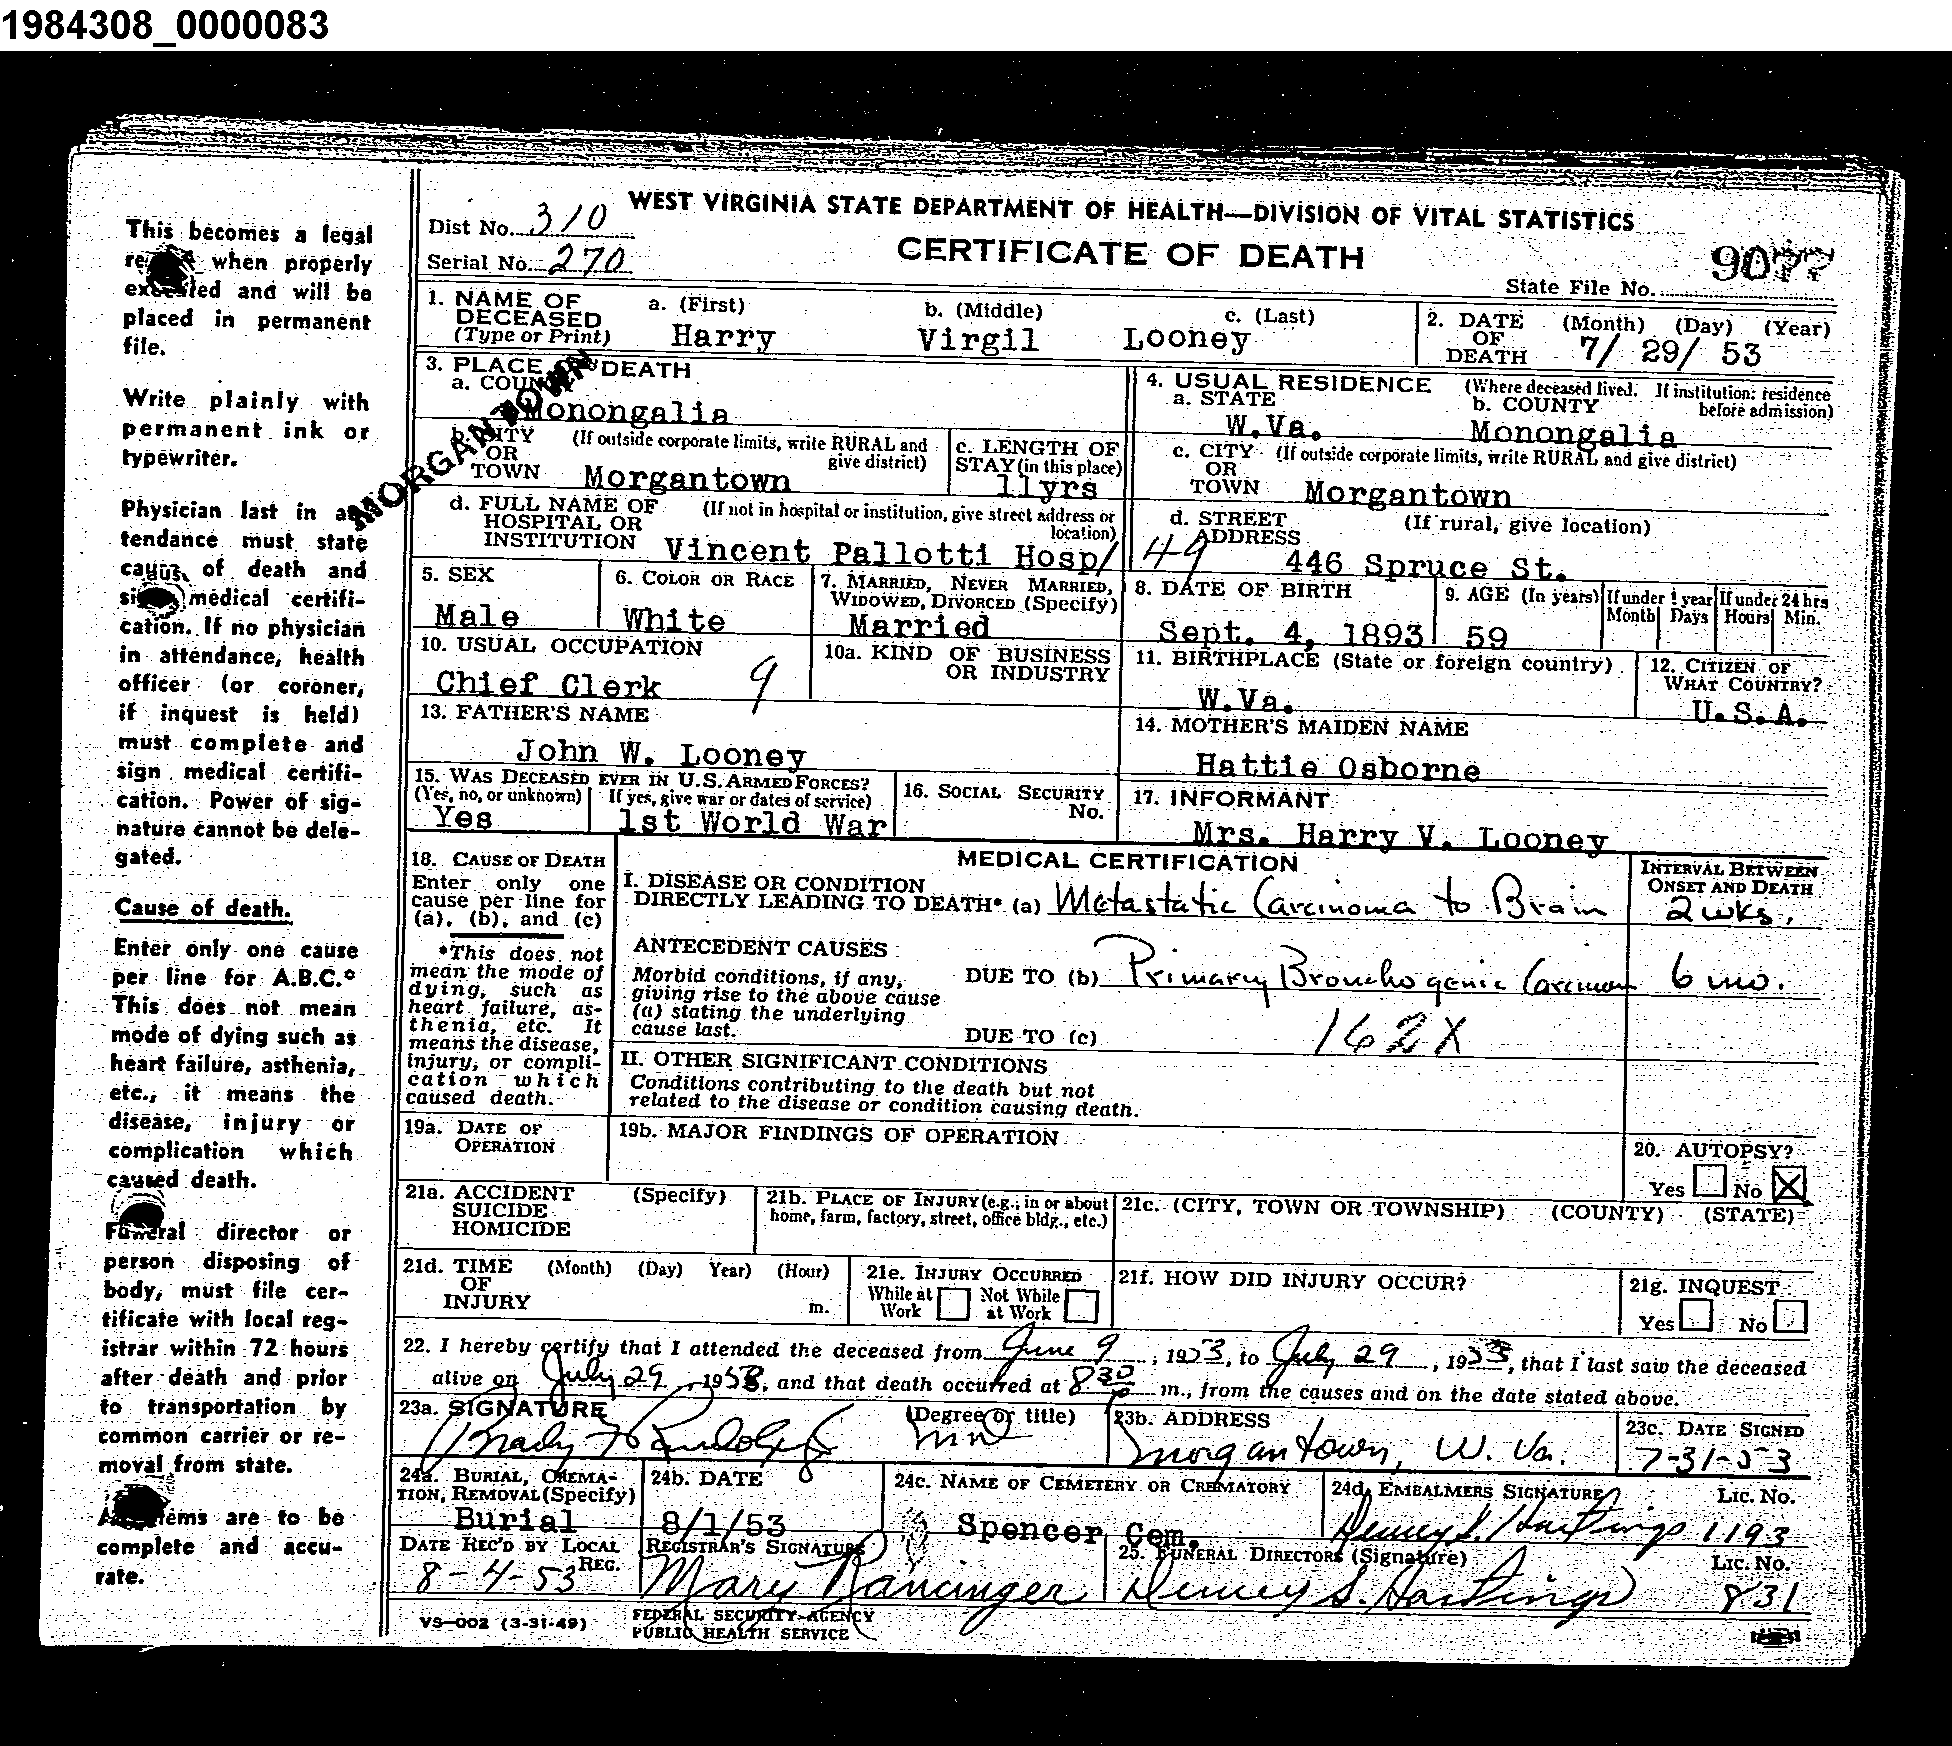 1984308_0000083
This becomes a legal
when properly
executed and will be
placed in permanent
file.
Write plainly with
permanent ink or
typewriter.
Physician last in at-
tendance must state
cause of death and
sign medical certifi-
cation. If no physician
in attendance, health
officer (or coroner,
if inquest is held)
must complete and
sign medical certifi-
cation. Power of sig-
nature cannot be dele-
gated.
Cause of death.
Enter only one cause
per line for A.B.C.*
This does not mean
mode of dying such as
heart failure, asthenia,
etc., it means the
disease, injury or
complication which
caused death.
Funeral director or
person disposing of
body, must file cer-
tificate with local reg-
istrar within 72 hours
after death and prior
to transportation by
common carrier or re-
moval from state.
items are to be
complete and accu-
rate.
WEST VIRGINIA STATE DEPARTMENT OF HEALTH—DIVISION OF VITAL STATISTICS
Dist No. 310
CERTIFICATE OF DEATH
Serial No. 270
9077
State File No.
1. NAME OF DECEASED (Type or Print) a. (First) Harry b. (Middle) Virgil c. (Last) Looney
2. DATE OF DEATH (Month) (Day) (Year) 7/ 29/ 53
MORGANTOWN
3. PLACE OF DEATH
a. COUNTY Monongalia
b. CITY OR TOWN (If outside corporate limits, write RURAL and give district) Morgantown
c. LENGTH OF STAY (in this place) 11yrs
d. FULL NAME OF HOSPITAL OR INSTITUTION (If not in hospital or institution, give street address or location) Vincent Pallotti Hosp/
4. USUAL RESIDENCE (Where deceased lived. If institution: residence before admission)
a. STATE W.Va. b. COUNTY Monongalia
c. CITY OR TOWN (If outside corporate limits, write RURAL and give district) Morgantown
d. STREET ADDRESS (If rural, give location) 49 446 Spruce St.
5. SEX Male
6. COLOR OR RACE White
7. MARRIED, NEVER MARRIED, WIDOWED, DIVORCED (Specify) Married
8. DATE OF BIRTH Sept. 4, 1893
9. AGE (In years) 59 If under 1 year Month Days If under 24 hrs Hours Min.
10. USUAL OCCUPATION Chief Clerk 9
10a. KIND OF BUSINESS OR INDUSTRY
11. BIRTHPLACE (State or foreign country) W.Va.
12. CITIZEN OF WHAT COUNTRY? U.S.A.
13. FATHER'S NAME John W. Looney
14. MOTHER'S MAIDEN NAME Hattie Osborne
15. WAS DECEASED EVER IN U.S. ARMED FORCES? (Yes, no, or unknown) Yes If yes, give war or dates of service) 1st World War
16. SOCIAL SECURITY No.
17. INFORMANT Mrs. Harry V. Looney
18. CAUSE OF DEATH
Enter only one
cause per line for
(a), (b), and (c)
*This does not
mean the mode of
dying, such as
heart failure, as-
thenia, etc. It
means the disease,
injury, or compli-
cation which
caused death.
MEDICAL CERTIFICATION
INTERVAL BETWEEN ONSET AND DEATH
I. DISEASE OR CONDITION
DIRECTLY LEADING TO DEATH* (a) Metastatic Carcinoma to Brain 2 wks.
ANTECEDENT CAUSES
Morbid conditions, if any,
giving rise to the above cause
(a) stating the underlying
cause last.
DUE TO (b) Primary Bronchogenic Carcinoma 6 mo.
DUE TO (c) 162X
II. OTHER SIGNIFICANT CONDITIONS
Conditions contributing to the death but not
related to the disease or condition causing death.
19a. DATE OF OPERATION
19b. MAJOR FINDINGS OF OPERATION
20. AUTOPSY?
Yes No X
21a. ACCIDENT SUICIDE HOMICIDE (Specify)
21b. PLACE OF INJURY (e.g., in or about home, farm, factory, street, office bldg., etc.)
21c. (CITY, TOWN OR TOWNSHIP) (COUNTY) (STATE)
21d. TIME OF INJURY (Month) (Day) Year) (Hour) m.
21e. INJURY OCCURRED While at Work Not While at Work
21f. HOW DID INJURY OCCUR?
21g. INQUEST Yes No
22. I hereby certify that I attended the deceased from June 9, 1953, to July 29, 1953, that I last saw the deceased
alive on July 29, 1953, and that death occurred at 8 30 p m., from the causes and on the date stated above.
23a. SIGNATURE Brady Randolph (Degree or title) MD
23b. ADDRESS Morgantown, W. Va.
23c. DATE SIGNED 7-31-53
24a. BURIAL, CREMATION, REMOVAL (Specify) Burial
24b. DATE 8/1/53
24c. NAME OF CEMETERY OR CREMATORY Spencer Cem.
24d. EMBALMERS SIGNATURE Dewey S. Hastings Lic. No. 1193
DATE REC'D BY LOCAL REG. 8-4-53
REGISTRAR'S SIGNATURE Mary
25. FUNERAL DIRECTORS (Signature) Dewey S. Hastings Lic. No. 831
VS—002 (3-31-49)
FEDERAL SECURITY AGENCY
PUBLIC HEALTH SERVICE